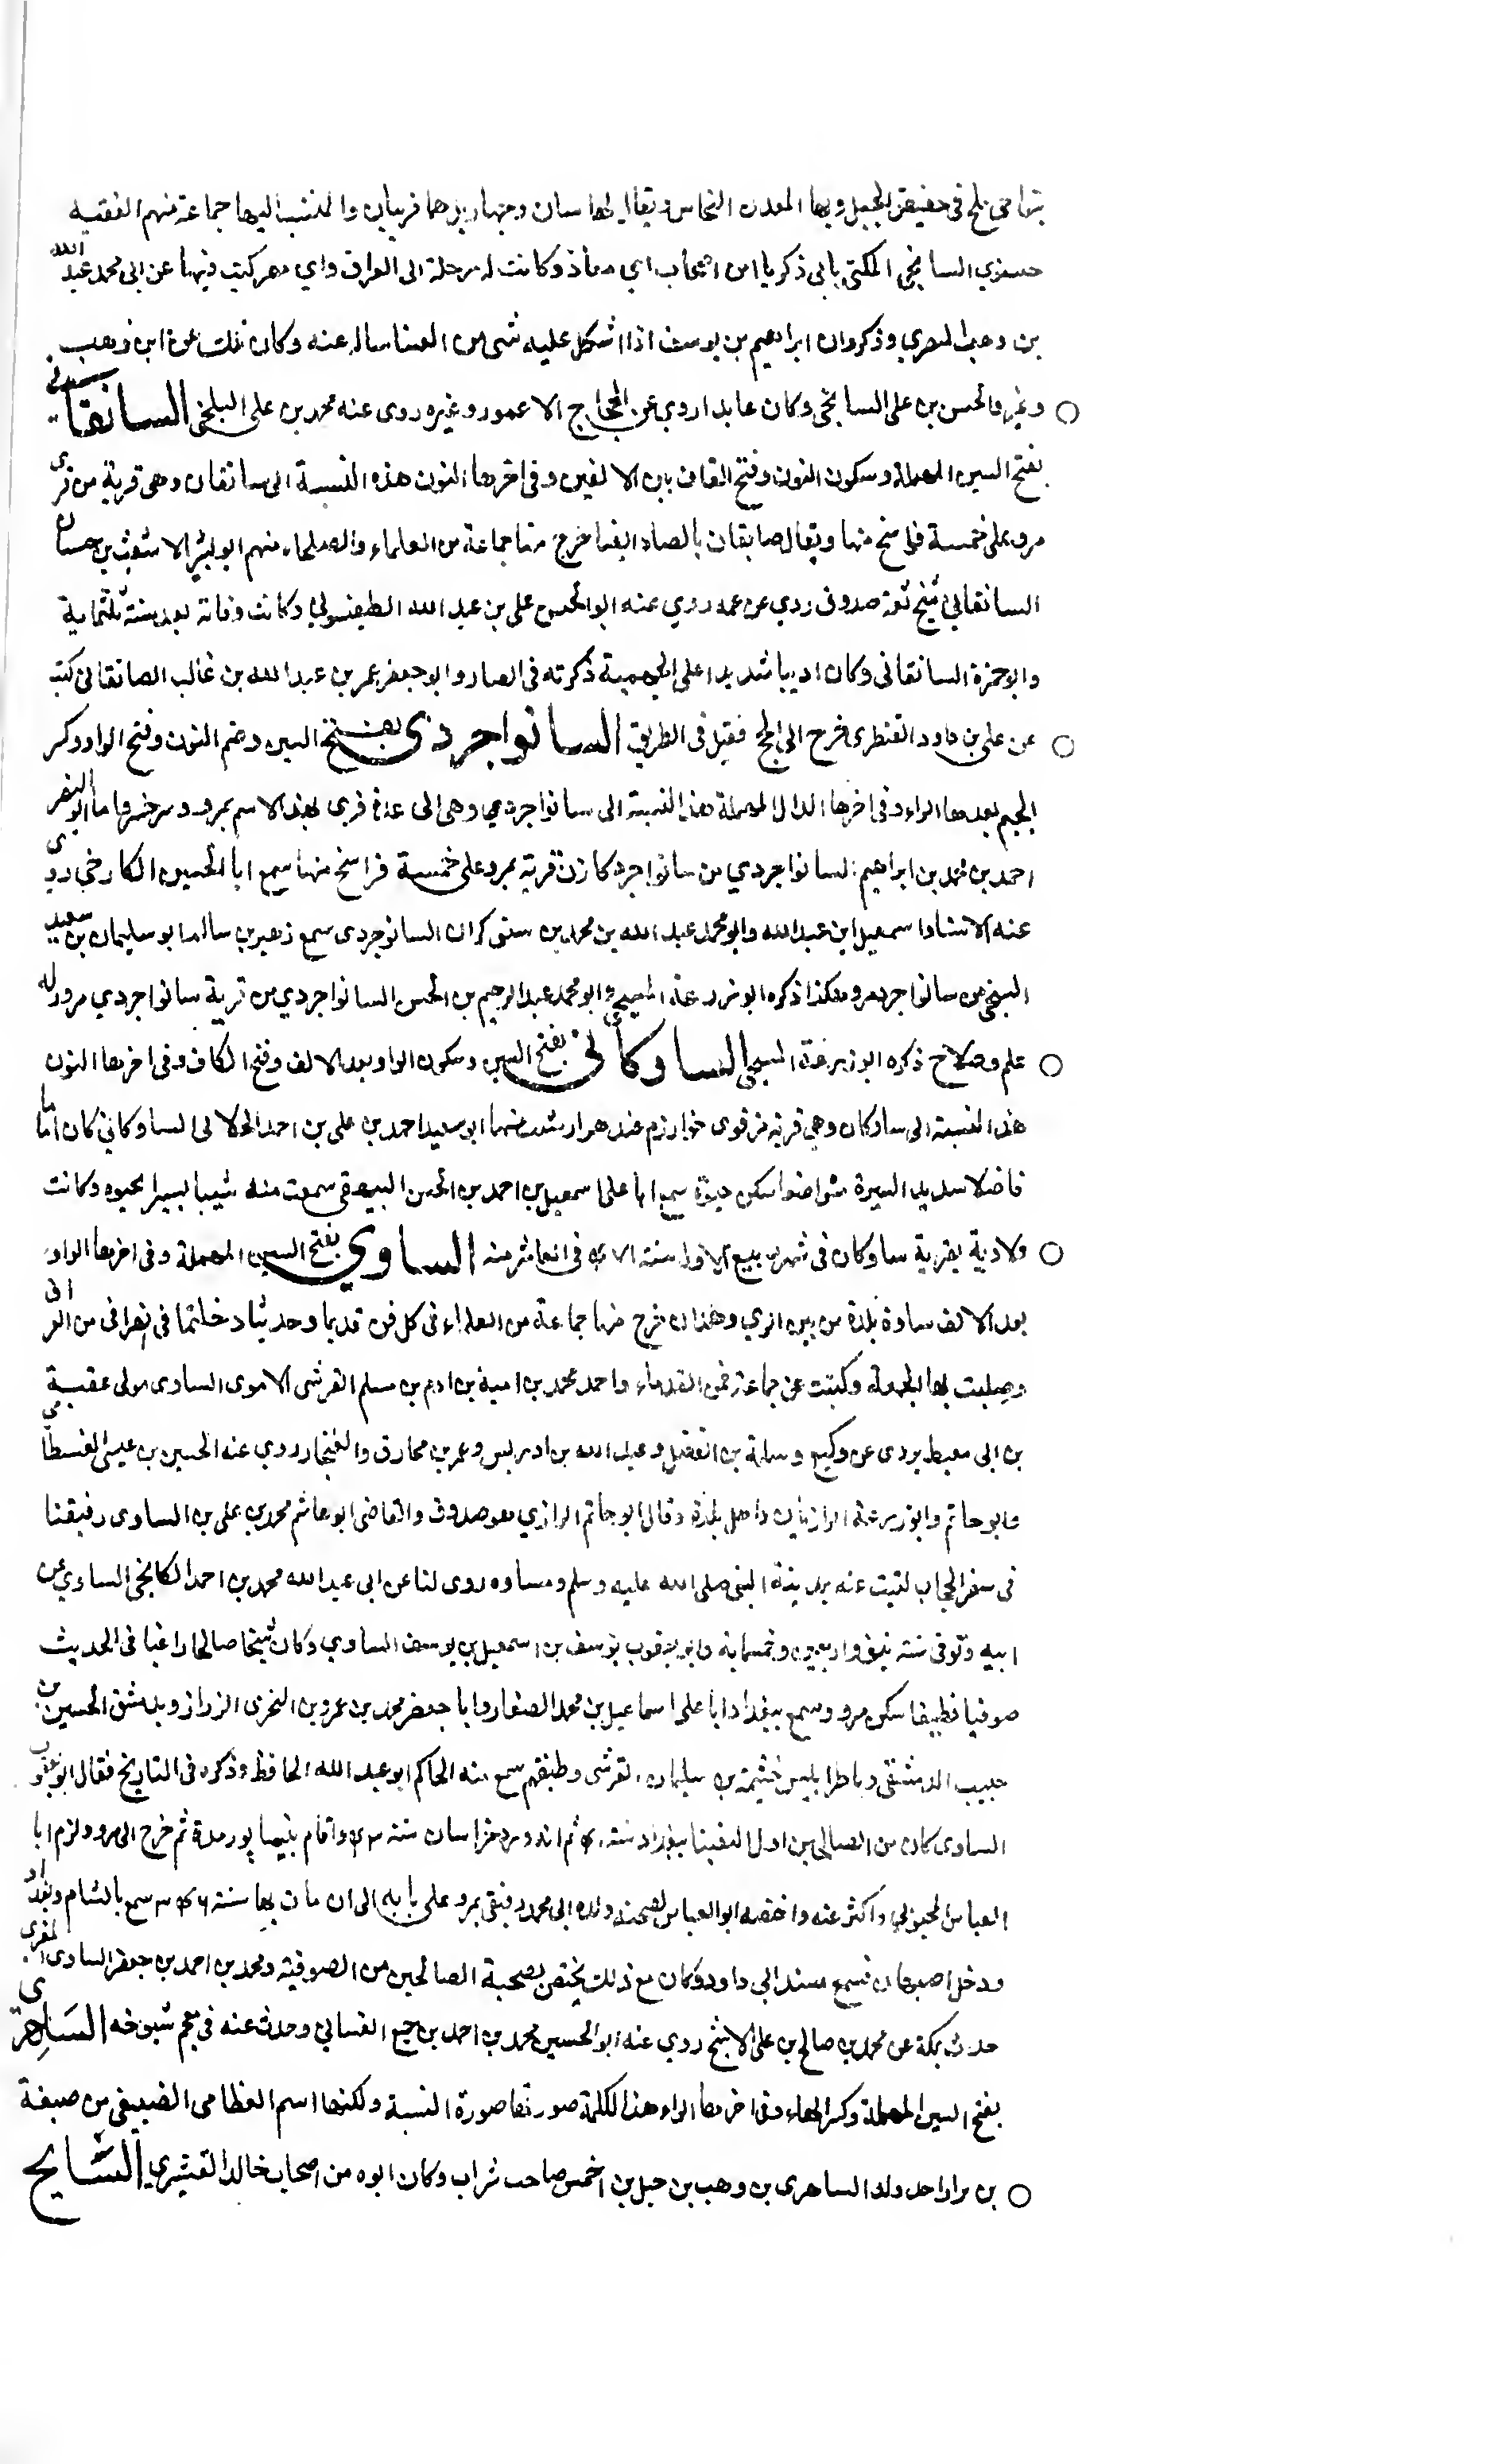 بنواحى بلخ فى مضيق الجبل وبها المعدن النحاس ويقال لها سان وجهار يل هما قريتان والمنتسب اليها جماعة منهم الفقيه
السانجى المكنى بابى زكريا من اصحاب ابى معاذ وكانت له رحلة الى العراق والى مصر كتب فيها عن ابى محمد عبد الله
بن وهب المصرى وذكر ان ابراهيم بن يوسف اذا اشكل عليه شى من سال عنه وكان ابن وهب
وغيره والحسن بن على السانجى وكان عابدا روى عن الحجاج الاعور وغيره روى عنه محمد بن على البلخى السانقانى
بفتح السين المهملة وسكون النون وفتح القاف بين الالفين وفى اخرها النون هذه النسبة الى سانقان وهى قرية من قرى
مرو على خمسة فراسخ منها ويقال صانقان بالصاد ايضا خرج منها جماعة من العلماء والصلحاء منهم ابو بشر الاشعث بن حسان
السانقانى شيخ ثقة صدوق روى عن عمه روى عنه ابو الحسن على بن عبد الله الطيفونى وكانت وفاته بعد سنة ثلثماية
وابو حمزة السانقانى وكان اديبا شديدا على الجهمية ذكرته فى الصاد وابو جعفر عمر بن عبد الله بن غالب الصانقانى كتب
عن على بن داود القنطرى خرج الى الحج فقتل فى الطريق السانواجردى بفتح السين وضم النون وفتح الواو وكسر
الجيم بعدها الراء وفى اخرها الدال المهملة هذه النسبة الى سانواجرد وهى الى عدة قرى بهذا الاسم بمرو وسرخس واما ابو النضر
احمد بن محمد بن ابراهيم السانواجردى من سانواجرد قرية بمرو على خمسة فراسخ منها سمع ابا الحسين روى
عنه الاستاد اسمعيل بن عبد الله وابو محمد عبد الله بن محمد بن السانوجردى سمع زهير بن سالم ابو سليمان بن سعيد
السنجى من سانواجرد مرو هكذا ذكره ابو زرعة السنجى وابو محمد عبد الرحيم بن الحسن السانواجردى من قرية سانواجردى مرو له
علم وصلاح ذكره ابو زرعة السنجى الساوكانى بفتح السين وسكون الواو بعد الالف وفتح الكاف وفى اخرها النون
هذه النسبة الى ساوكان وهى قرية من قرى خوارزم عند منها ابو سعيد احمد بن على بن احمد الساوكانى كان اماما
فاضلا سديد السيرة متواضعا سكن سمع ابا على اسمعيل بن احمد بن الحسن البيهقى سمعت منه شيئا يسيرا وكانت
ولادته بقرية ساوكان فى شهر ربيع الاول سنة فى العاشر منه الساوى بفتح السين المهملة وفى اخرها الواو
بعد الالف ساوة بلدة من بين الرى وهمذان خرج منها جماعة من العلماء فى كل فن قديما وحديثا دخلتها فى انصرافى من العراق
وصليت بها الجمعة وكتبت عن جماعة فمن القدماء واحمد محمد بن امية بن ادم بن مسلم القرشى الاموى الساوى مولى عقبة
بن ابى معيط يروى عن وكيع وسلمة بن الفضل وعبد الله بن ادريس وعمر بن مخارق والغنجار روى عنه الحسين بن عيسى القسطامى
وابو حاتم وابو زرعة الرازيان واهل بلده وقال ابو حاتم الرازى هو صدوق والقاضى ابو هاشم محمد بن على بن الساوى رفيقنا
فى سفر الحجاز لقيت عنه بمدينة النبى صلى الله عليه وسلم وبساوه روى لنا عن ابى عبد الله محمد بن احمد الكامخى الساوى عن
ابيه وتوفى سنة نيف واربعين وخمسماية وابو يعقوب يوسف بن اسمعيل بن يوسف الساوى وكان شيخا صالحا راغبا فى الحديث
صوفيا نظيفا سكن مرو وسمع ببغداد ابا على اسماعيل بن محمد الصفار وابا جعفر محمد بن عمرو بن البخترى الرزاز وبدمشق الحسين بن
حبيب الدمشقى وباطرابلس خيثمة بن سليمان القرشى وطبقتهم سمع منه الحاكم ابو عبد الله الحافظ وذكره فى التاريخ فقال ابو يعقوب
الساوى كان من الصالحين اول التقينا ببغداد سنة ثم انه ورد خراسان سنة واقام بنيسابور مدة ثم خرج الى مرو ولزم ابا
العباس المحبوبى واكثر عنه واختصه ابو العباس لصحبة ولده ابى محمد وبقى بمرو على بابه الى ان مات بها سنة ٣٤٦ سمع بالشام وبغداد
ودخل اصبهان فسمع مسند ابى داود وكان مع ذلك يختص بصحبة الصالحين من الصوفية ومحمد بن احمد بن جعفر الساوى المقرى
حدث بمكة عن محمد بن صالح بن على الاشج روى عنه ابو الحسين محمد بن احمد بن جميع الغسانى وحدث عنه فى معجم شيوخه الساهرى
بفتح السين المهملة وكسر الهاء وفى اخرها الراء هذا الكلمة صورتها صورة النسبة ولكنها اسم الضبيعى من ضبيعة
بن ولد الساهرى بن وهب بن بن احمس صاحب شراب وكان ابوه من اصحاب خالد القشيرى السايح